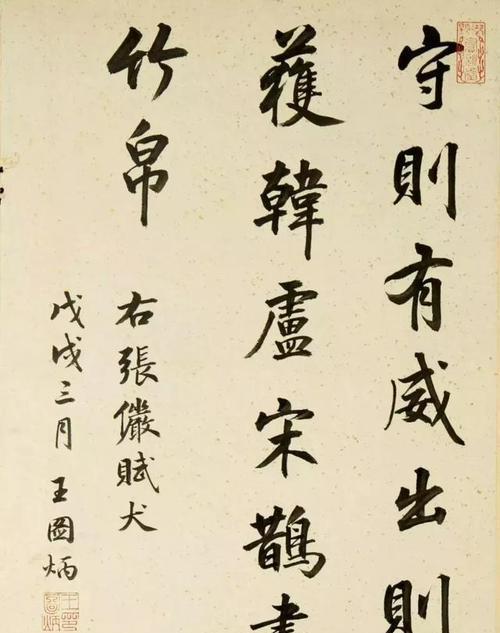 守則有威出則
獲韓盧宋鵲書
竹帛
右張儼賦犬
戊戌三月王圖炳